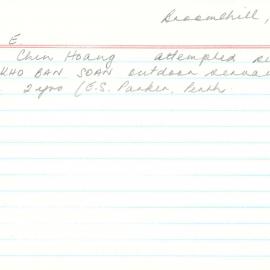 Broomehill,
E.
Chin Hoang attempted
KHO BAN SOAN outdoor
2 yrs (E.S. Parker, Perth